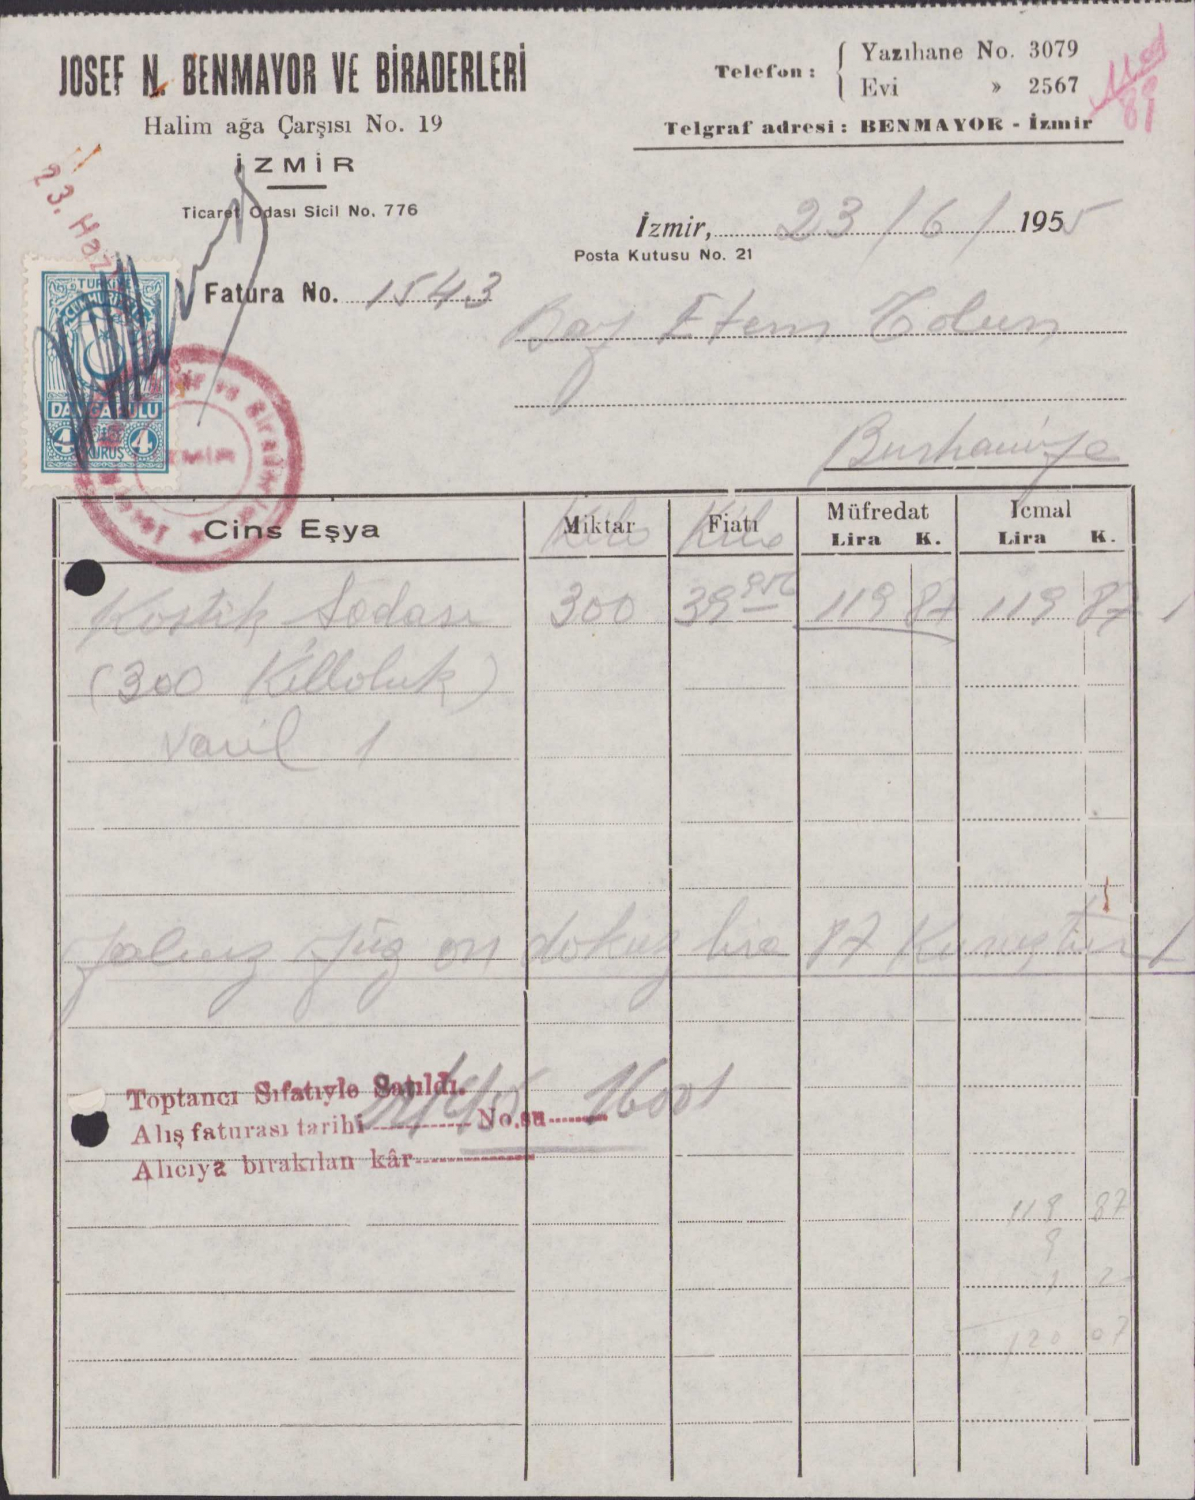 JOSEF N. BENMAYOR VE BİRADERLERİ
Halim ağa Çarşısı No. 19
İZMİR
Ticaret Odası Sicil No. 776
Telefon : Yazıhane No. 3079
Evi » 2567
Telgraf adresi : BENMAYOR - İzmir
89
23. Haz
İzmir, 23/6/1955
Posta Kutusu No. 21
Fatura No. 1543
Bay Etem Tolun
Burhaniye
TÜRKİYE
CUMHURİYETİ
DAMGA PULU
4 KURUŞ 4
Cins Eşya Miktar Fiatı Müfredat İcmal
Kilo Kilo Lira K. Lira K.
Kostik Sodası 300 39 956 119 87 119 87
(300 Killoluk)
Varil 1
Yalınız yüz on dokuz lira 87 Kuruştur
Toptancı Sıfatıyle Satıldı.
Alış faturası tarihi No.su 16001
Alıcıya bırakılan kâr
119 87
120 07